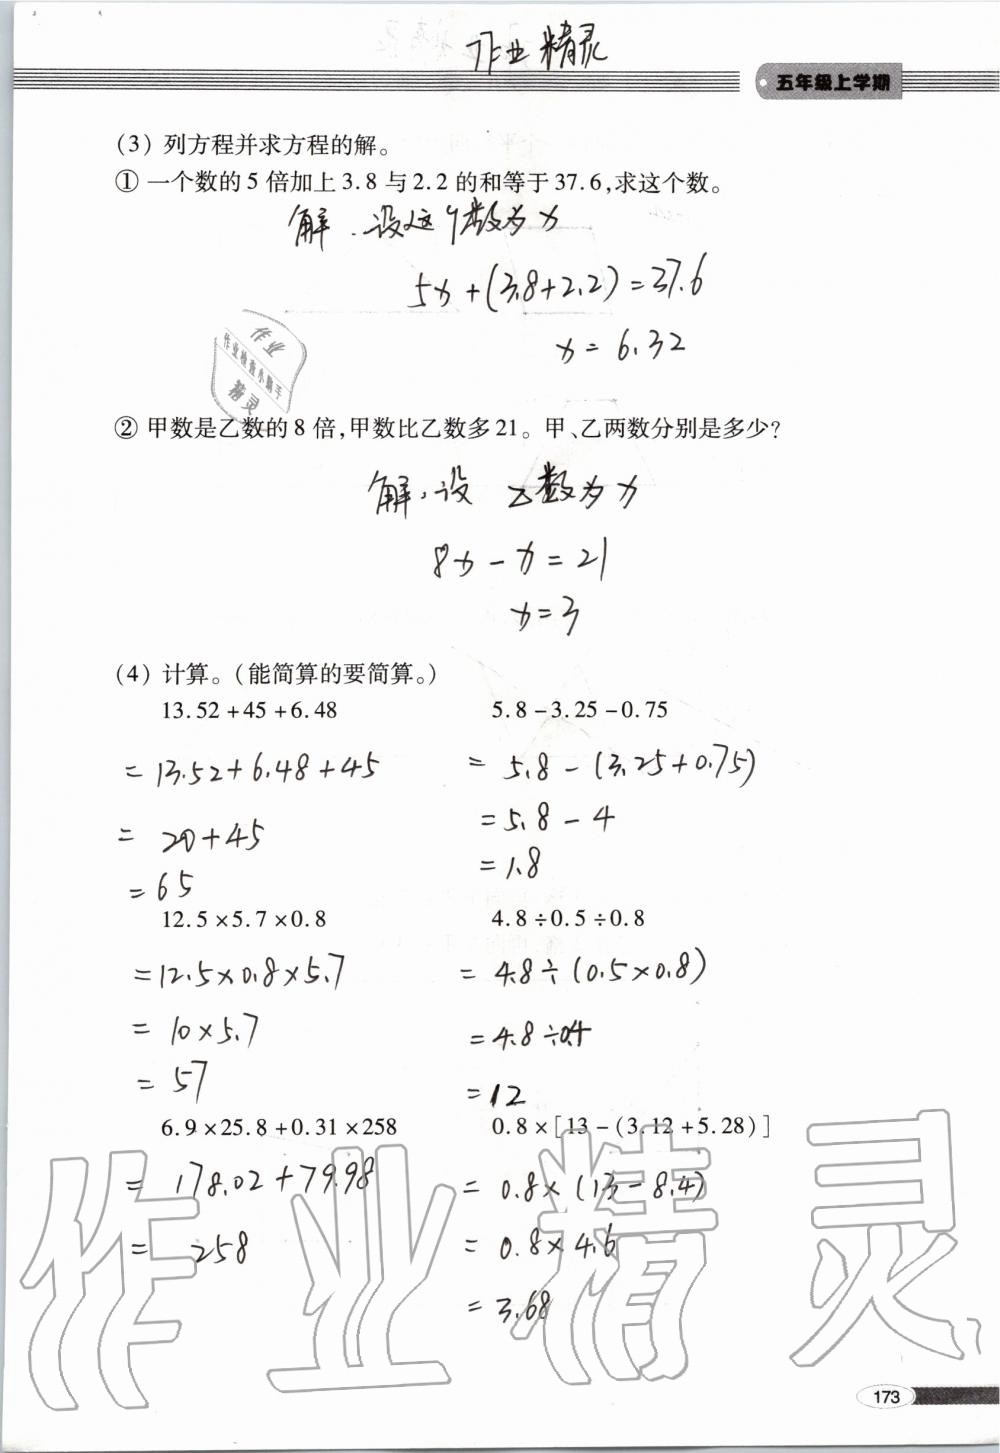 作业精灵
五年级上学期
(3) 列方程并求方程的解。
① 一个数的5倍加上3.8与2.2的和等于37.6,求这个数。
解.设这个数为x
5x+(3.8+2.2)=37.6
x=6.32
作业
作业检查小助手
精灵
② 甲数是乙数的8倍,甲数比乙数多21。甲、乙两数分别是多少?
解.设 乙数为x
8x-x=21
x=3
(4) 计算。(能简算的要简算。)
13.52+45+6.48
=13.52+6.48+45
=20+45
=65
5.8-3.25-0.75
=5.8-(3.25+0.75)
=5.8-4
=1.8
12.5×5.7×0.8
=12.5×0.8×5.7
=10×5.7
=57
4.8÷0.5÷0.8
=4.8÷(0.5×0.8)
=4.8÷0.4
=12
6.9×25.8+0.31×258
=178.02+79.98
=258
0.8×[13-(3.12+5.28)]
=0.8×(13-8.4)
=0.8×4.6
=3.68
作业精灵
173